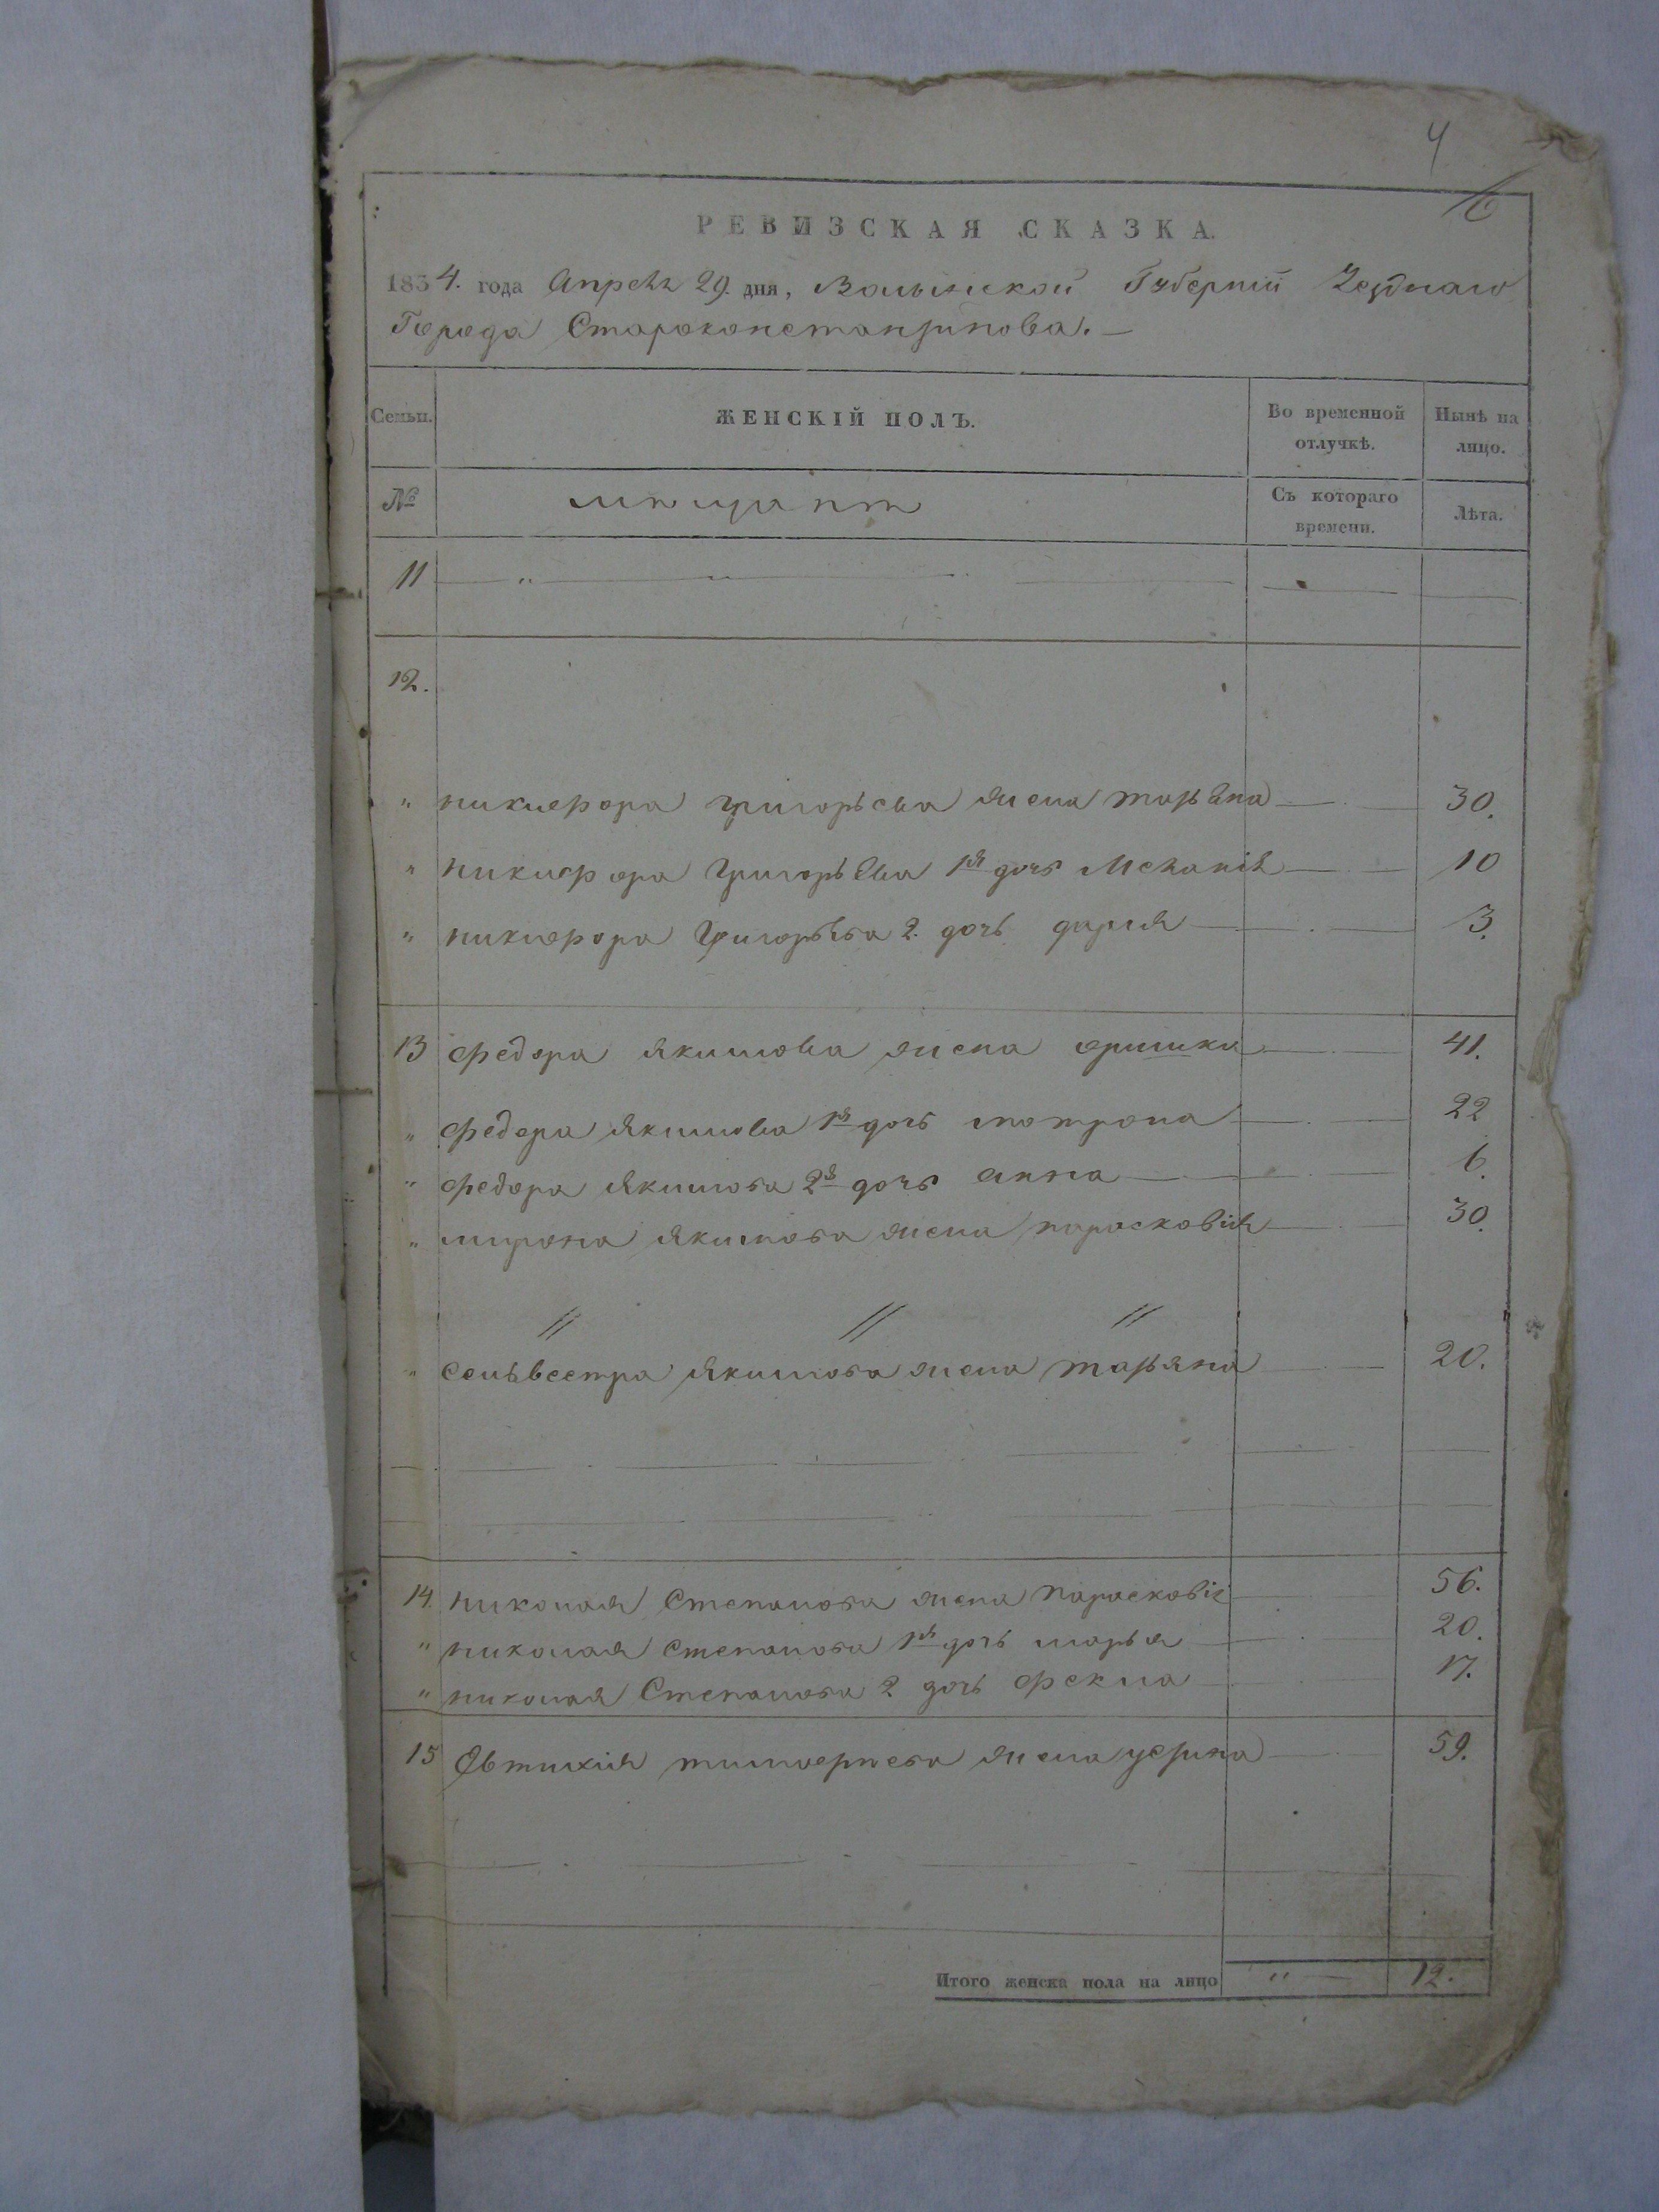 4
6
РЕВИЗСКАЯ СКАЗКА.
1834. года Апреля 29. дня, Волынской Губернiи Уезднаго
Города Староконстантинова. —
Семьи. ЖЕНСКIЙ ПОЛЪ. Во временной отлучкѣ. Нынѣ на лицо.
№ мещанъ Съ котораго времени. Лѣта.
11
12.
" никифора григорьева жена татьяна 30.
" никифора григорьева 1я дочь Меланiя 10
" никифора григорьева 2. дочь дария 3.
13 федора якимова жена оришка 41.
" федора якимова 1я дочь мотрона 22
" федора якимова 2я дочь анна 6.
" мирона якимова жена парасковiя 30.
// // //
" сельвестра якимова жена татьяна 20.
14. николая Степанова жена парасковiя 56.
" николая степанова 1я дочь марья 20.
" николая Степанова 2 дочь фекла 17.
15 Евтихия тимофеева жена 59.
Итого женска пола на лицо " — 12.